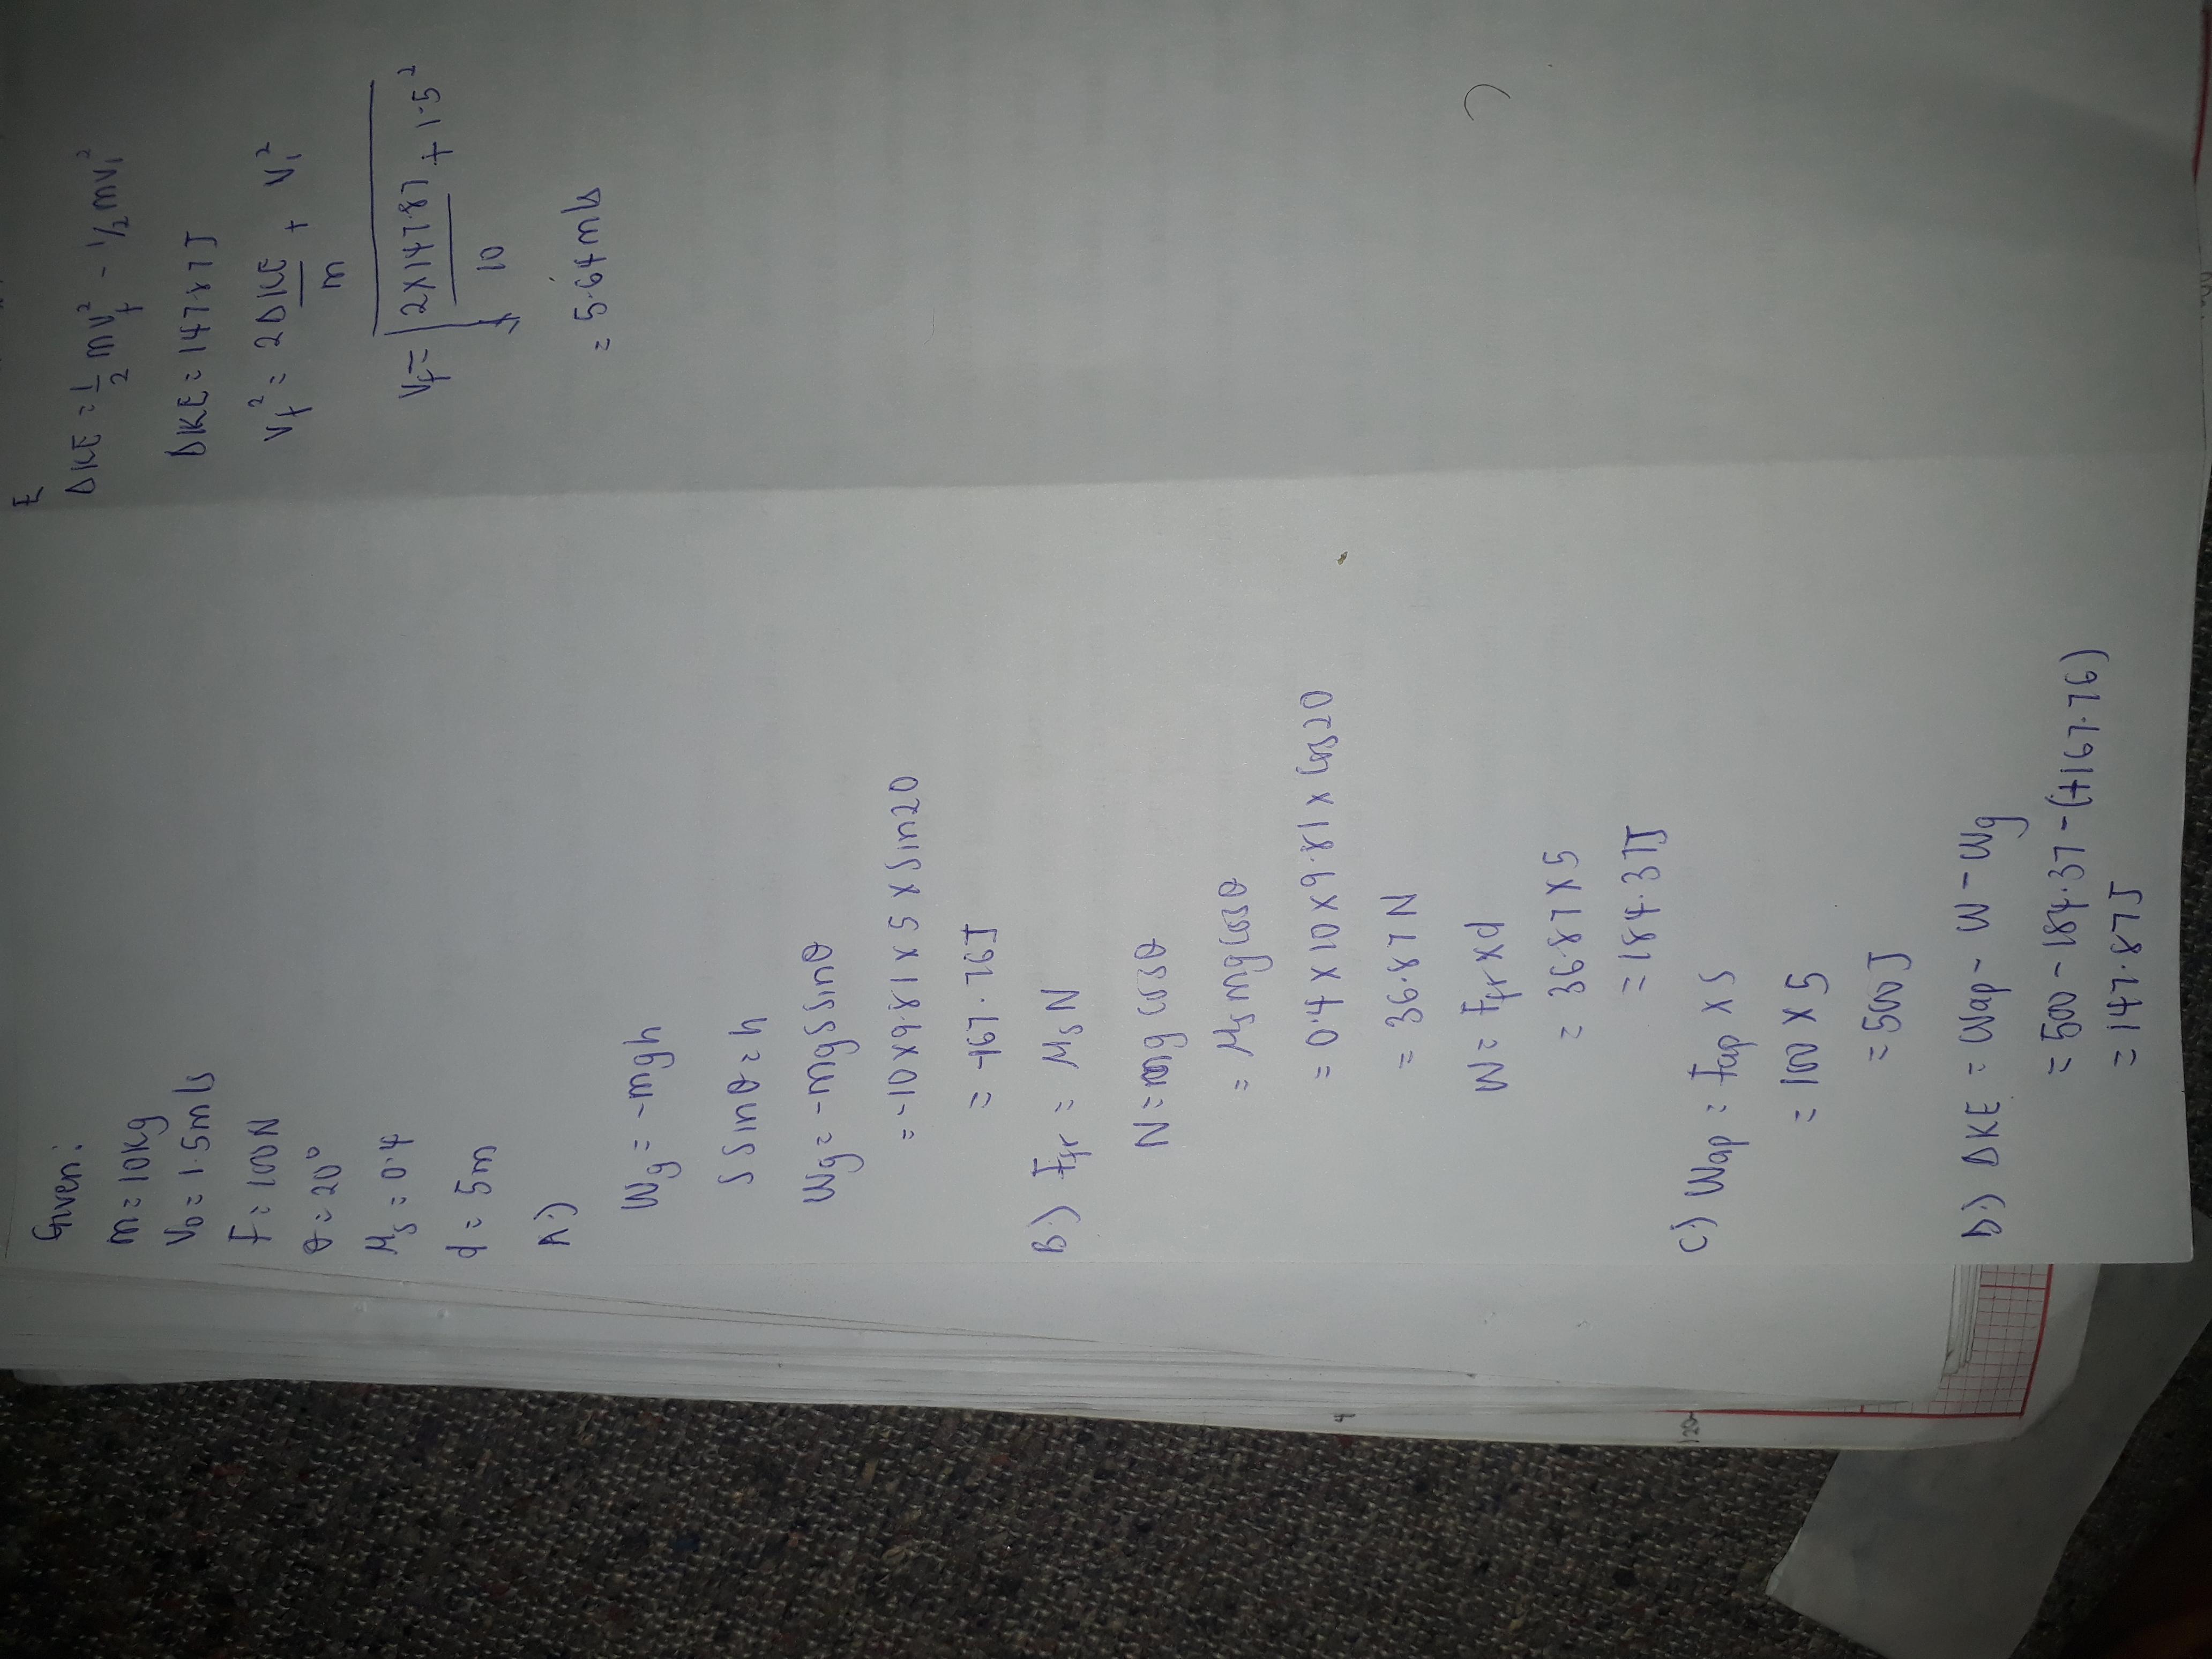 Given:
m = 10kg
V₀ = 1.5m/s
F = 100N
θ = 20°
μs = 0.4
d = 5m
A.)
Wg = -mgh
S sinθ = h
Wg = -mgs sinθ
= -10 x 9.81 x 5 x sin20
= -167.76J
B.) Ffr = μsN
N = mg cosθ
= μs mg cosθ
= 0.4 x 10 x 9.81 x cos20
= 36.87N
W = Ffr x d
= 36.87 x 5
= 184.37J
C.) Wap = Fap x S
= 100 x 5
= 500J
D.) ΔKE = Wap - W - Wg
= 500 - 184.37 - (+167.76)
= 147.87J
E
ΔKE = 1/2 mVf² - 1/2 mVi²
ΔKE = 147.87J
Vf² = 2ΔKE/m + Vi²
Vf = √(2x147.87/10 + 1.5²)
= 5.64m/s
4
120